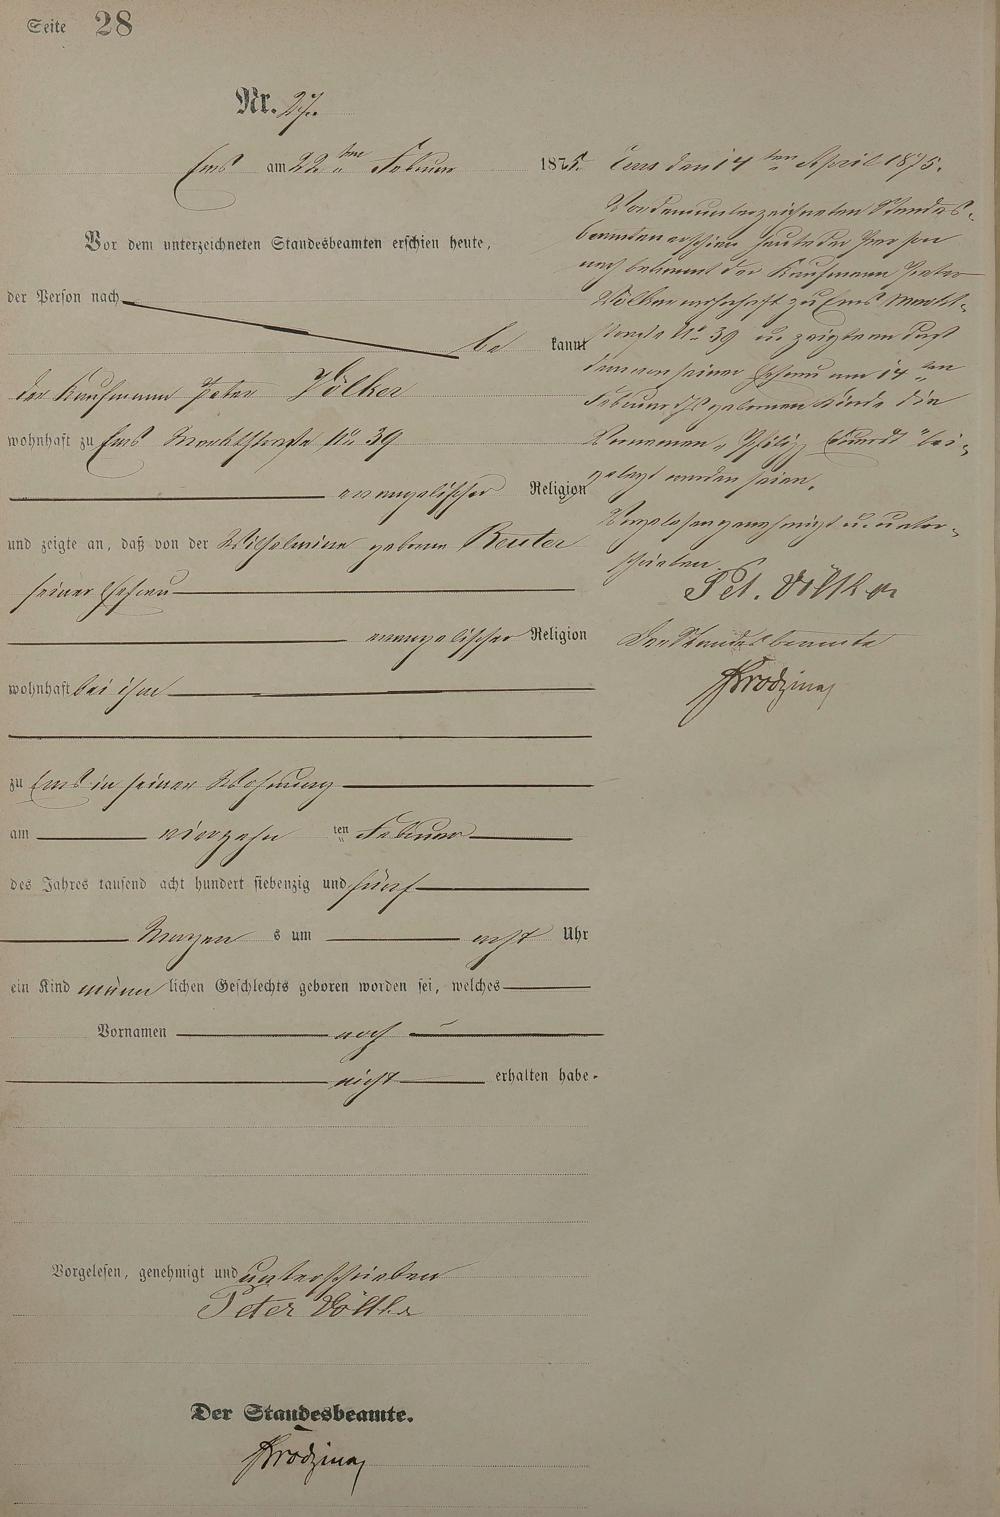 Seite 28
Nr. 27.
Ems am 22ten Februar 1875.
Vor dem unterzeichneten Standesbeamten erschien heute,
der Person nach
be kannt
der Kaufmann Peter Völker
wohnhaft zu Ems Marktstraße No 39
evangelischer Religion
und zeigte an, daß von der Wilhelmine geborne Reuter
seiner Ehefrau
evangelischer Religion
wohnhaft bei ihm
zu Ems in seiner Wohnung
am vierzehn ten Februar
des Jahres tausend acht hundert siebenzig und fünf
Morgen s um acht Uhr
ein Kind männ lichen Geschlechts geboren worden sei, welches
Vornamen noch
nicht erhalten habe.
Vorgelesen, genehmigt und unterschrieben
Peter Völker
Der Standesbeamte.
Ems den 14ten April 1875.
Vor dem unterzeichneten Standes-
beamten erschien heute der Person
nach bekannt der Kaufmann Peter
Völker wohnhaft zu Ems Markt-
straße No 39 u. zeigte an daß
dem von seiner Ehefrau am 14ten
Februar ds Js geborenen Kinde die
Vornamen „Philipp Eduard“ bei-
gelegt worden seien.
Vorgelesen genehmigt u. unter-
schrieben.
Pet. Völker
Der Standesbeamte